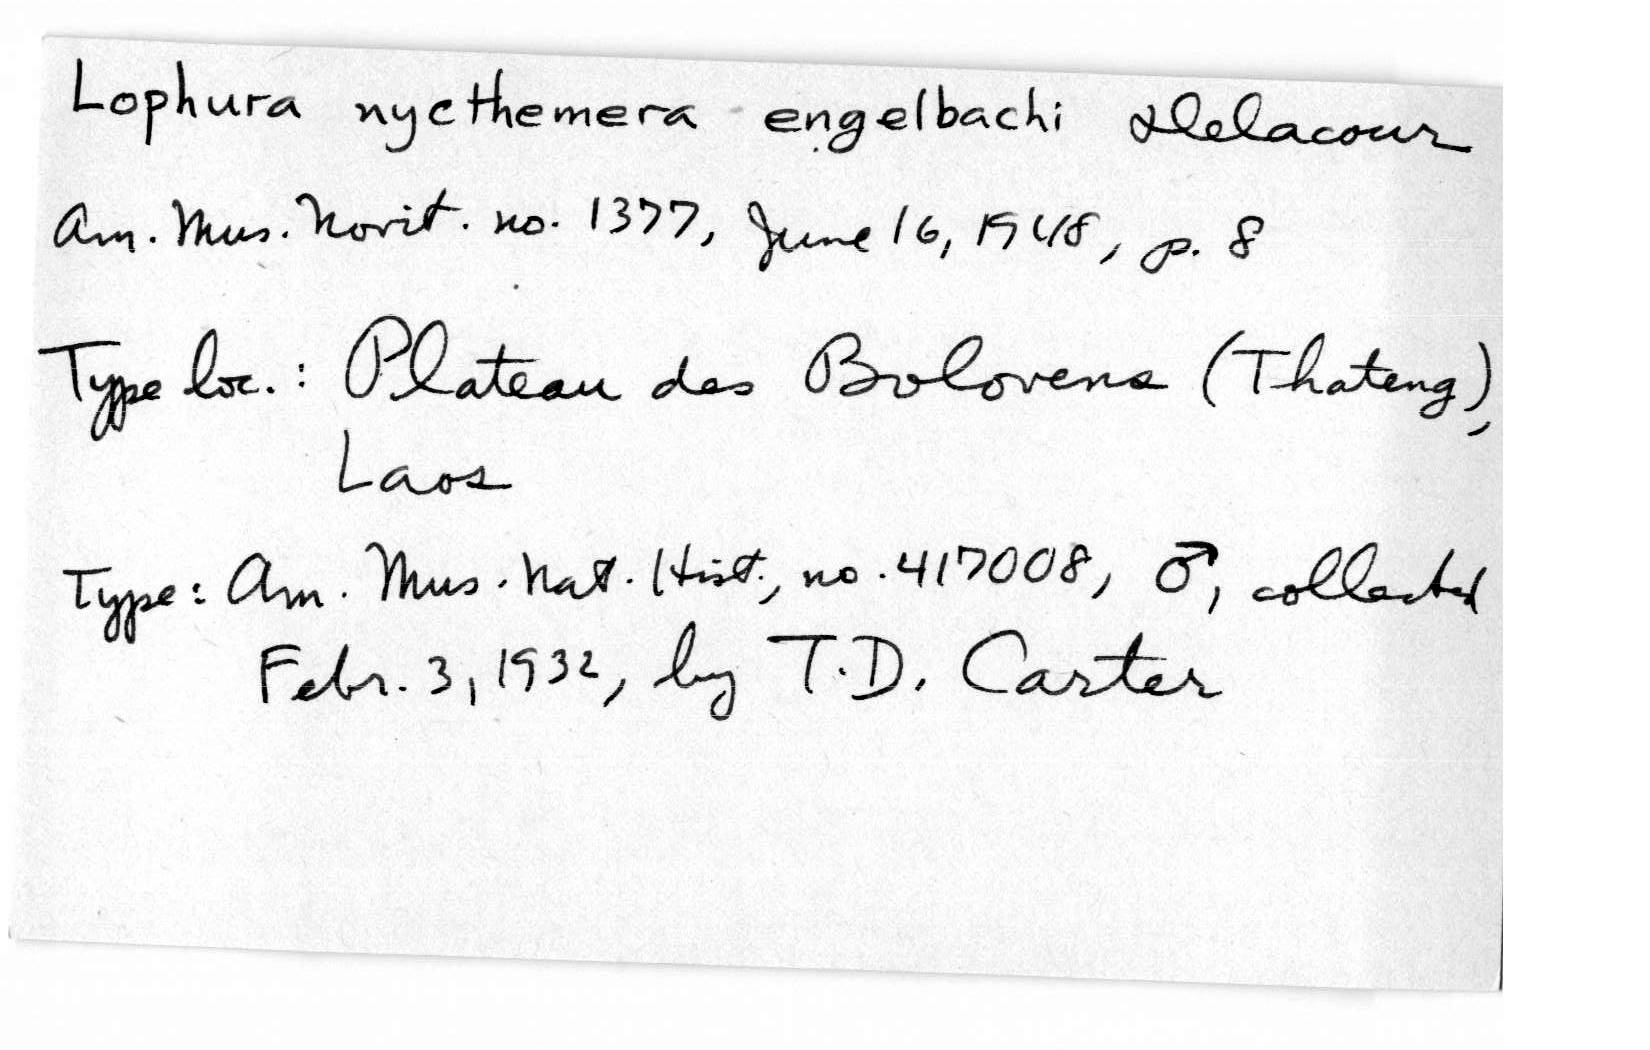 Lophura nycthemera engelbachi Delacour
Am. Mus. Novit. no. 1377, June 16, 1948, p. 8
Type loc.: Plateau des Bolovens (Thateng),
Laos
Type: Am. Mus. Nat. Hist., no. 417008, ♂, collected
Febr. 3, 1932, by T.D. Carter